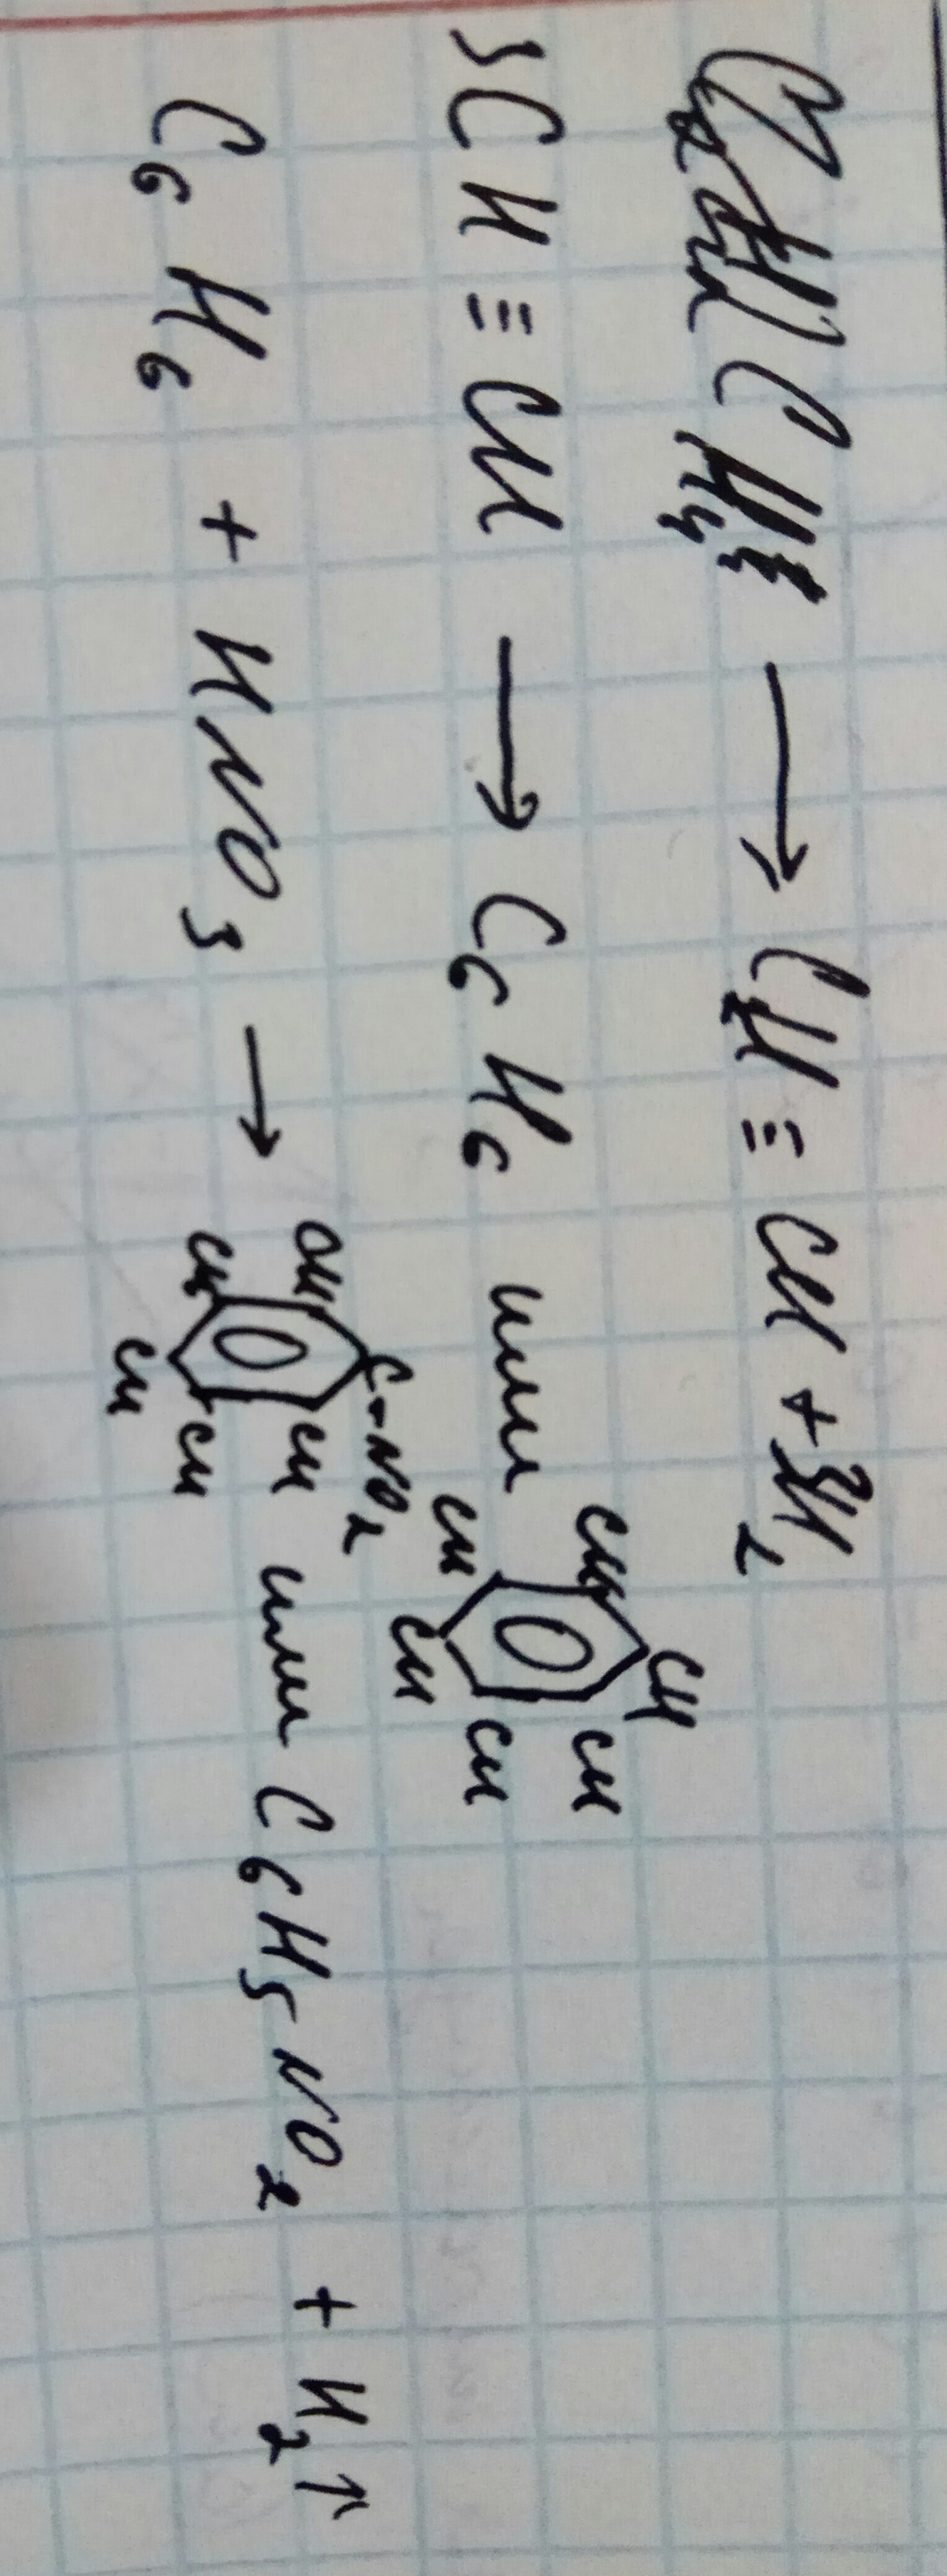 CH₄ → CH ≡ CH + 3H₂
3CH ≡ CH → C₆H₆ или CH CH CH CH CH CH
C₆H₆ + HNO₃ → C-NO₂ CH CH CH CH CH или C₆H₅NO₂ + H₂↑